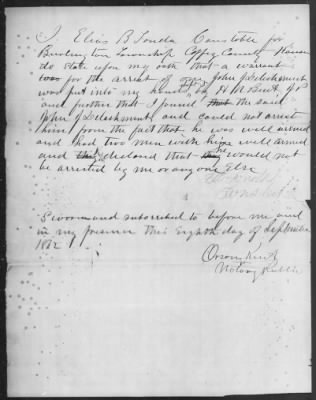 I Elias B Sonda Constable for
Burlington Township Coffey County Kansas
do state upon my oath that a warrant
was for the arrest of John J Delashmut
was put into my hands by H M
and further that I found that the said
John J Delashmutt and could not arrest
him from the fact that he was well armed
and had two men with him well armed
and declared that he would not
be arrested by me or any one Else
Swoorn and subscribed to before me and
in my presence this Eighth day of September
Orson Kent
Notary Public